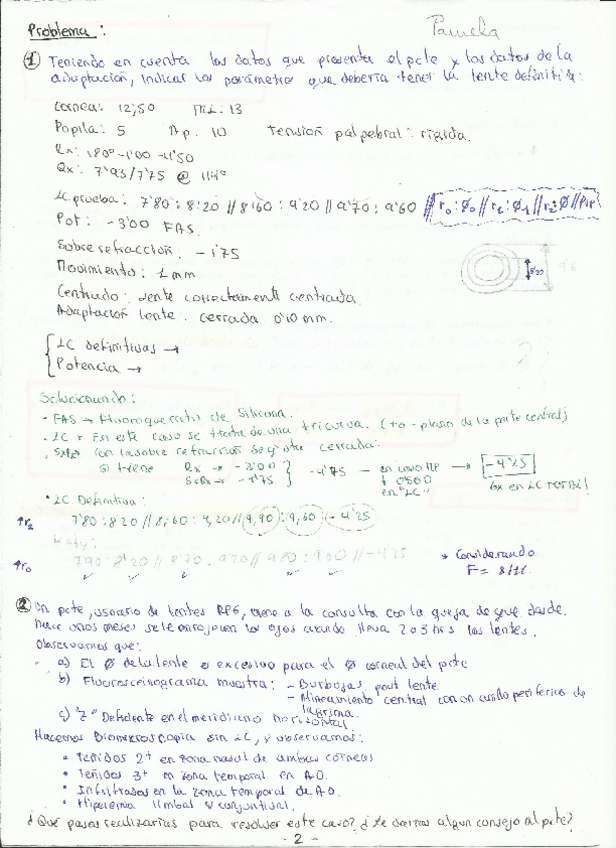 Problema: Pamela
① Teniendo en cuenta los datos que presenta el pcte y los datos de la
adaptación, indicar los parámetros que debería tener la lente definitiva:
Cornea: 12,50 ML: 13
Pupila: 5 Ap. 10 tensión palpebral: rígida.
Rx: 180° -1'00 -1'50
Qx: 7'93/7'75 @ 114°
LC prueba: 7'80 : 8'20 // 8'60 : 9'20 // 9'70 : 9'60 // r₀ : Ø₀ // r₁ : Ø₁ // r₂ : Ø // Pip
Pot: -3'00 FAS.
Sobre refracción: -1'75
Movimiento: 1 mm
Centrado: lente correctamente centrada.
Adaptación lente: cerrada 0'10 mm.
LC definitivas →
Potencia →
Solucionando:
• FAS → Fluoroquerato de Silicona.
• LC → En este caso se trata de una tricurva. (to - plano de la parte central)
con la sobre refracción
si tiene Rx → -3'00
SRx → -1'75 } -4'75 → -4'25
en "LC" Gx en LC TOTAL!
• LC Definitiva:
↑r₂ 7'80 : 8'20 // 8,60 : 9,20 // 9,90 : 9,60 // -4'25
↑r₀ 7'90 : 8'20 // 8'70 : 9'20 // 9'80 : 9'60 // -4'25
* Considerando
② Un pcte, usuario de lentes RPG, viene a la consulta con la queja de que desde
hace unos meses se le enrojecen los ojos cuando lleva 2 o 3 hrs los lentes.
Observamos que:
a) El Ø de la lente es excesivo para el Ø corneal del pcte
b) Fluoresceinograma muestra: - Burbujas post lente.
- Alineamiento central con un anillo periférico de
lágrima.
c) "Z" Deficiente en el meridiano horizontal
Hacemos Biomicroscopia sin LC, y observamos:
• Teñidos 2⁺ en zona nasal de ambas córneas
• Teñidos 3⁺ en zona temporal en AO.
• Infiltrados en la zona temporal de AO.
• Hiperemia limbal y conjuntival.
¿Qué pasos realizarías para resolver este caso? ¿Le darías algun consejo al pcte?
- 2 -